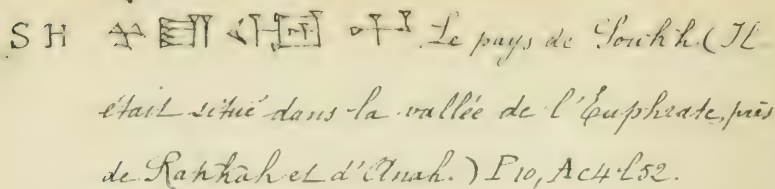 S H 𒆳 Le pays de Soukh. (Il
était situé dans la vallée de l'Euphrate, près
de Rakkàh et d'Anah.) P 10, Ac 4 l 52.